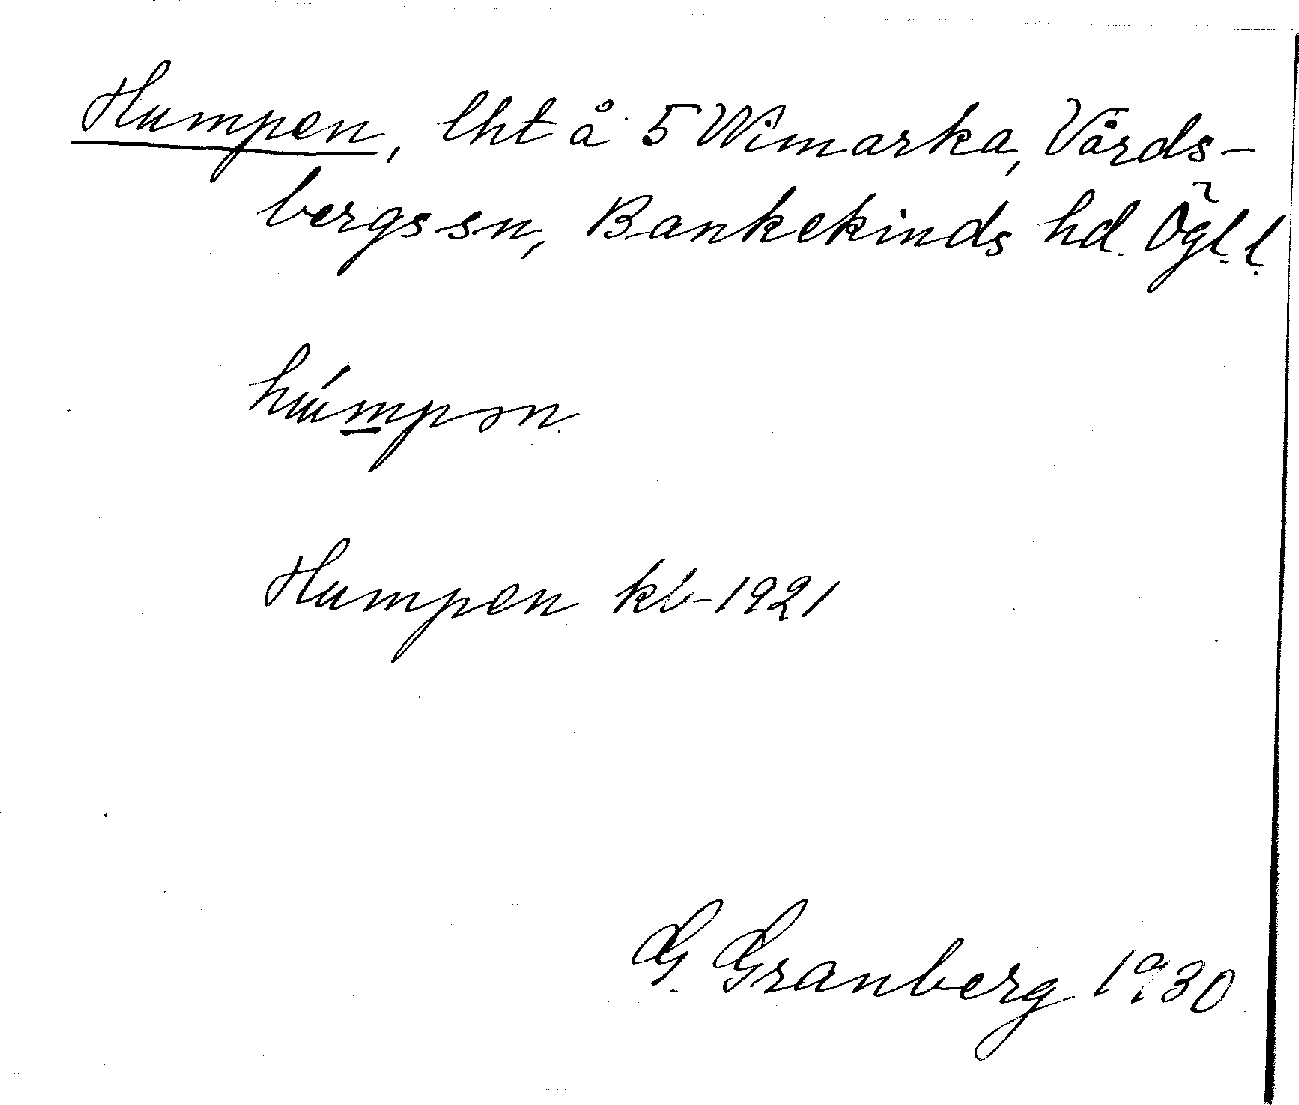 Humpen, lht å 5 Wimarka, Vårds-
bergs sn, Bankekinds hd. Ögl. l.
húmpən
Humpen kb-1921
G. Granberg 1930